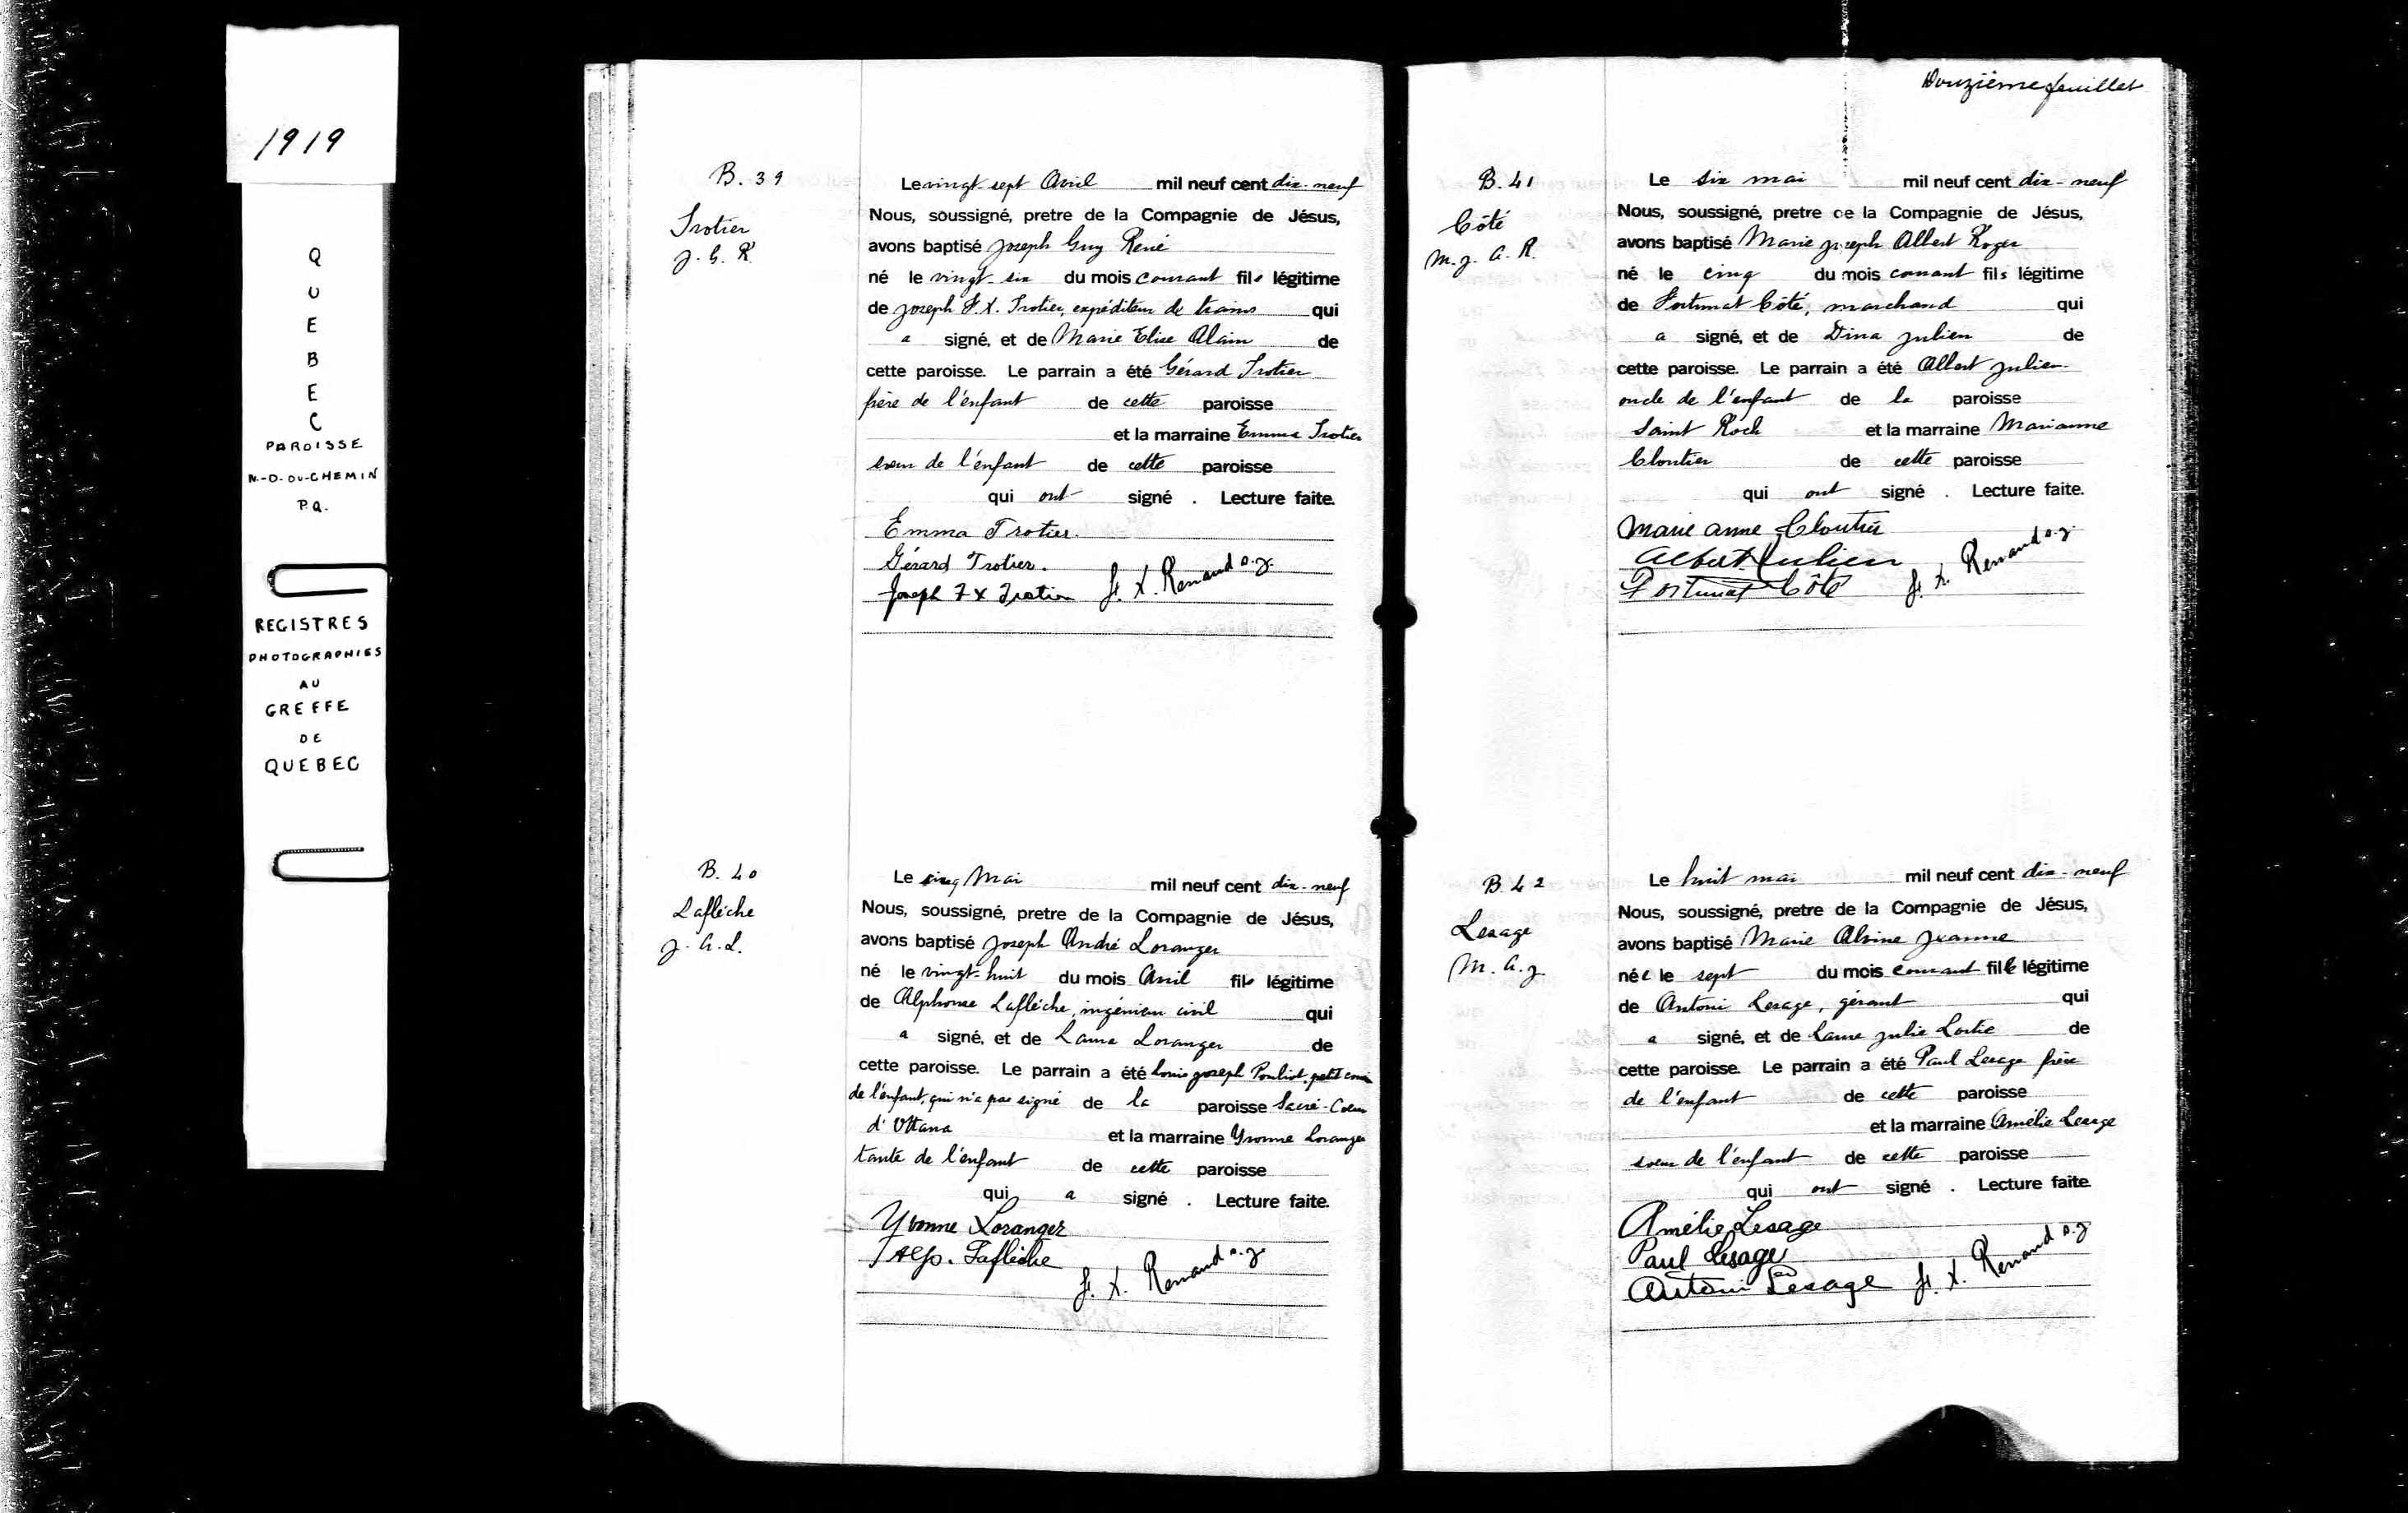 1919
QUEBEC
PAROISSE
N.-D.-DU-CHEMIN
P.Q.
REGISTRES
PHOTOGRAPHIES
AU
GREFFE
DE
QUEBEC
B. 39
Trotier
J. G. R.
Le vingt-sept Avril mil neuf cent dix-neuf
Nous, soussigné, pretre de la Compagnie de Jésus,
avons baptisé Joseph Guy René
né le vingt-six du mois courant fils légitime
de Joseph F. X. Trotier, expéditeur de trains qui
a signé, et de Marie Elise Alain de
cette paroisse. Le parrain a été Gérard Trotier
frère de l'enfant de cette paroisse
et la marraine Emma Trotier
soeur de l'enfant de cette paroisse
qui ont signé . Lecture faite.
Emma Trotier.
Gérard Trotier.
Joseph F X Trotier F. X. Renaud s.j.
B. 40
Laflèche
J. A. L.
Le cinq Mai mil neuf cent dix-neuf
Nous, soussigné, pretre de la Compagnie de Jésus,
avons baptisé Joseph André Loranger
né le vingt-huit du mois Avril fils légitime
de Alphonse Laflèche, ingénieur civil qui
a signé, et de Laura Loranger de
cette paroisse. Le parrain a été Louis Joseph Pouliot, petit cousin
de l'enfant, qui n'a pas signé de la paroisse Sacré-Coeur
d'Ottawa et la marraine Yvonne Loranger
tante de l'enfant de cette paroisse
qui a signé . Lecture faite.
Yvonne Loranger
Alp. Laflèche
F. X. Renaud s.j.
Douzième feuillet
B. 41
Côté
M. J. A. R.
Le six mai mil neuf cent dix-neuf
Nous, soussigné, pretre de la Compagnie de Jésus,
avons baptisé Marie Joseph Albert Roger
né le cinq du mois courant fils légitime
de Fortunat Côté, marchand qui
a signé, et de Dina Julien de
cette paroisse. Le parrain a été Albert Julien
oncle de l'enfant de la paroisse
Saint Roch et la marraine Marianne
Cloutier de cette paroisse
qui ont signé . Lecture faite.
Marie Anne Cloutier
Albert Julien
Fortunat Côté F. X. Renaud s.j.
B. 42
Lesage
M. A. J.
Le huit mai mil neuf cent dix-neuf
Nous, soussigné, pretre de la Compagnie de Jésus,
avons baptisé Marie Alvine Jeanne
née le sept du mois courant fille légitime
de Antoni Lesage, gérant qui
a signé, et de Laure Julie Lortie de
cette paroisse. Le parrain a été Paul Lesage frère
de l'enfant de cette paroisse
et la marraine Amélie Lesage
soeur de l'enfant de cette paroisse
qui ont signé . Lecture faite.
Amélie Lesage
Paul Lesage
Antoni Lesage F. X. Renaud s.j.